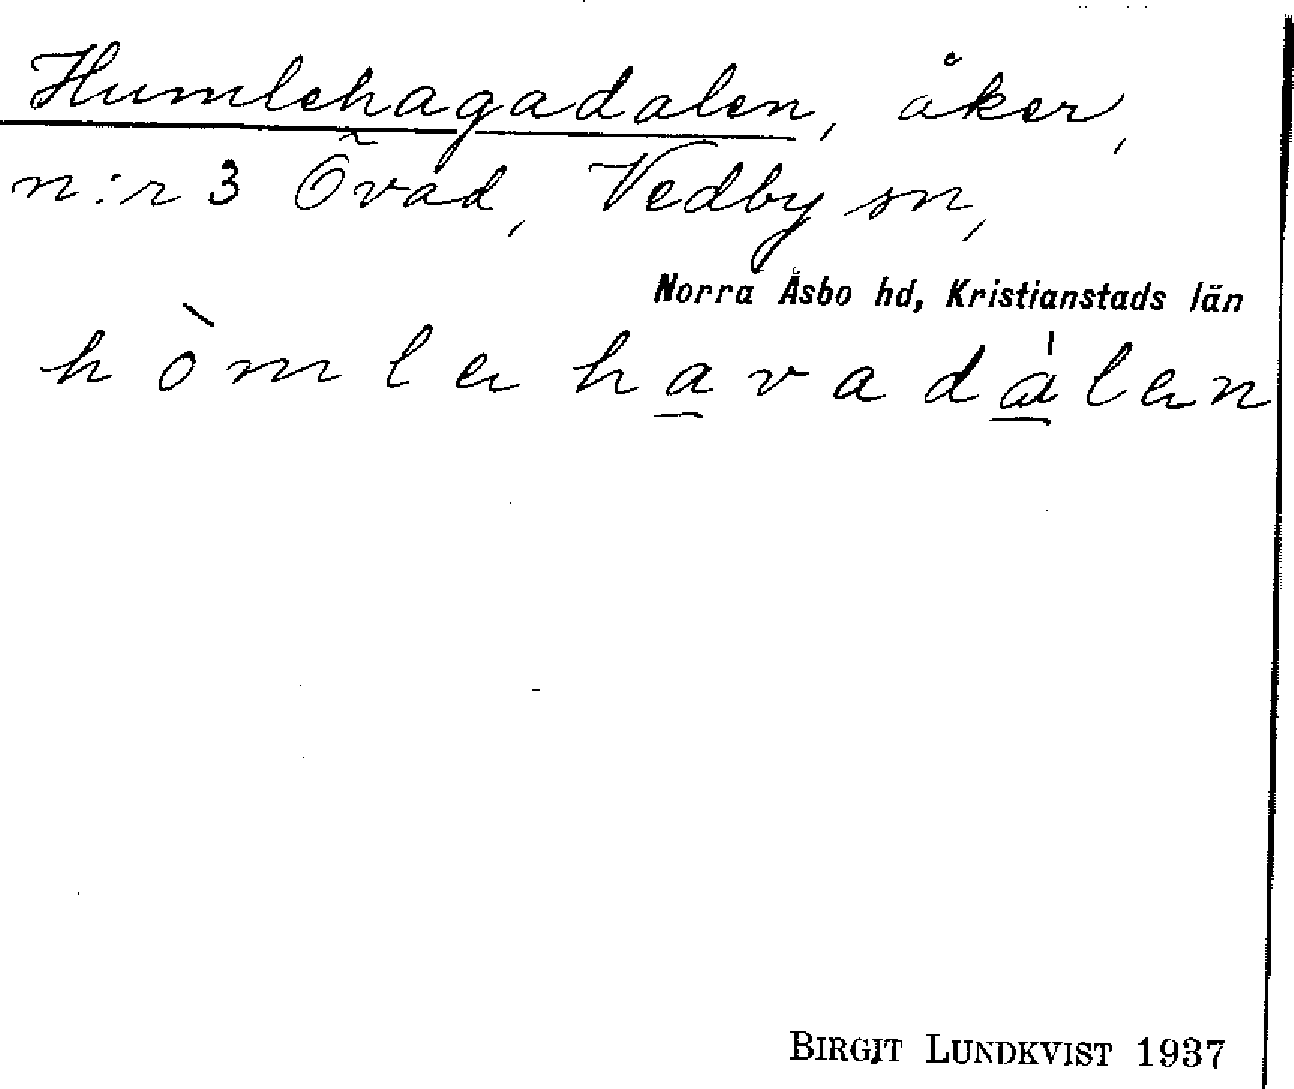 Humlehagadalen, åker,
n:r 3 Övad, Vedby sn,
Norra Åsbo hd, Kristianstads län
hòmlehavadálen
BIRGIT LUNDKVIST 1937